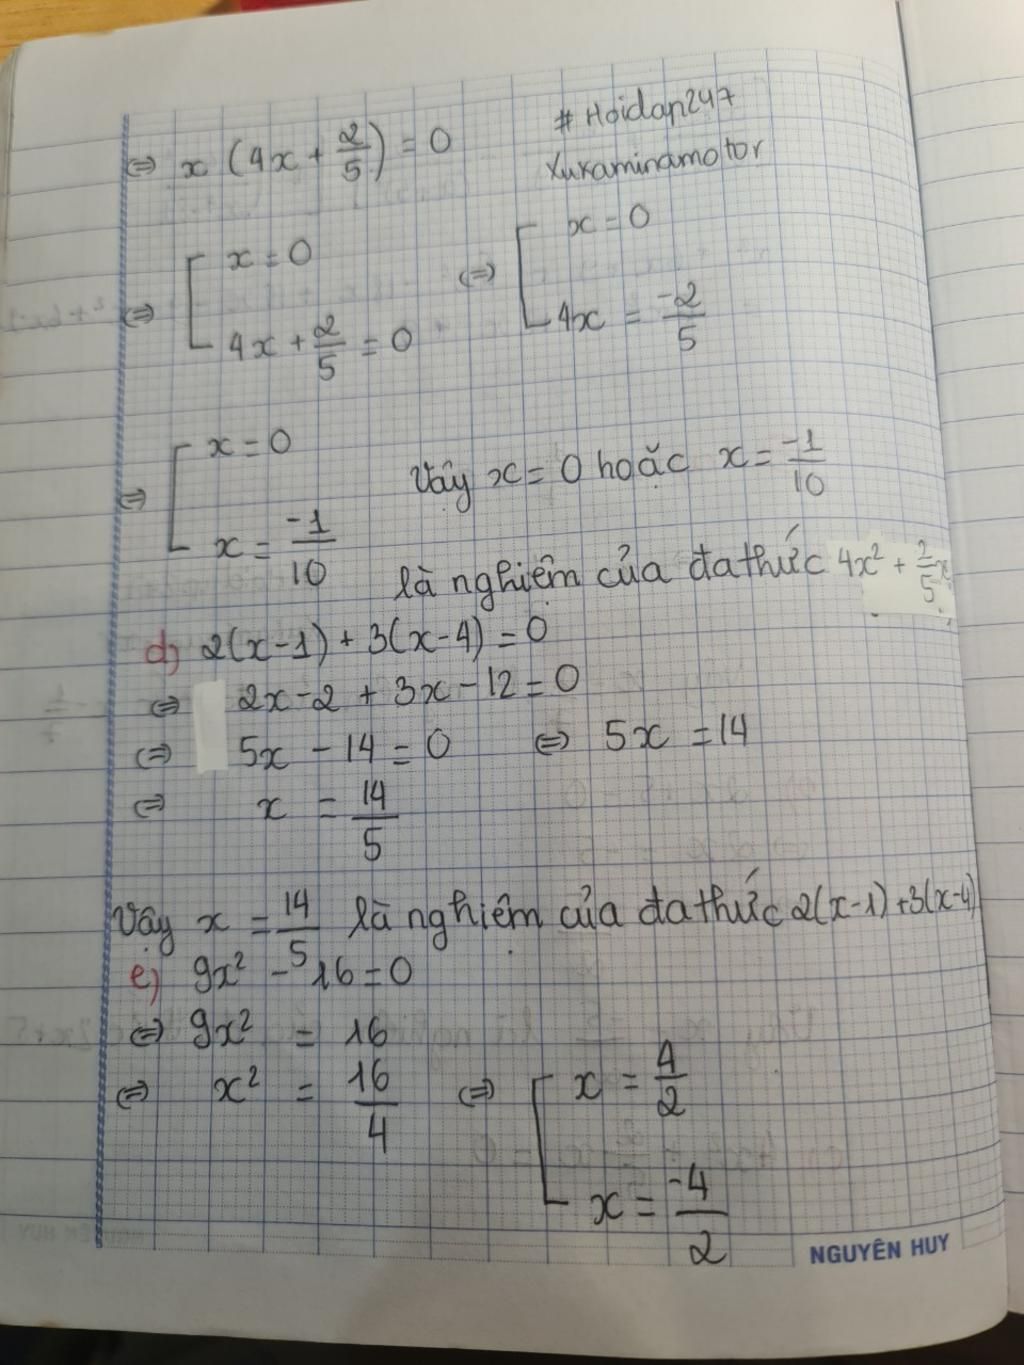 ⇔ x (4x + 2/5) = 0
# Hoidap247
Yukaminamotor
⇔ [ x = 0
4x + 2/5 = 0
⇔ [ x = 0
4x = -2/5
⇔ [ x = 0
x = -1/10
Vậy x = 0 hoặc x = -1/10
là nghiệm của đa thức 4x² + 2/5x
d) 2(x-1) + 3(x-4) = 0
⇔ 2x - 2 + 3x - 12 = 0
⇔ 5x - 14 = 0 ⇔ 5x = 14
⇔ x = 14/5
Vậy x = 14/5 là nghiệm của đa thức 2(x-1)+3(x-4)
e) 9x² - 16 = 0
⇔ 9x² = 16
⇔ x² = 16/4 ⇔ [ x = 4/2
x = -4/2
NGUYÊN HUY